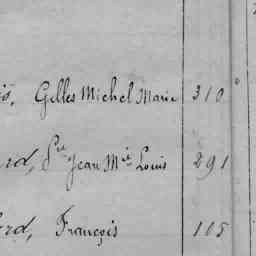 is, Gilles Michel Marie 310
rd, Pre Jean Mie Louis 291
ord, François 105